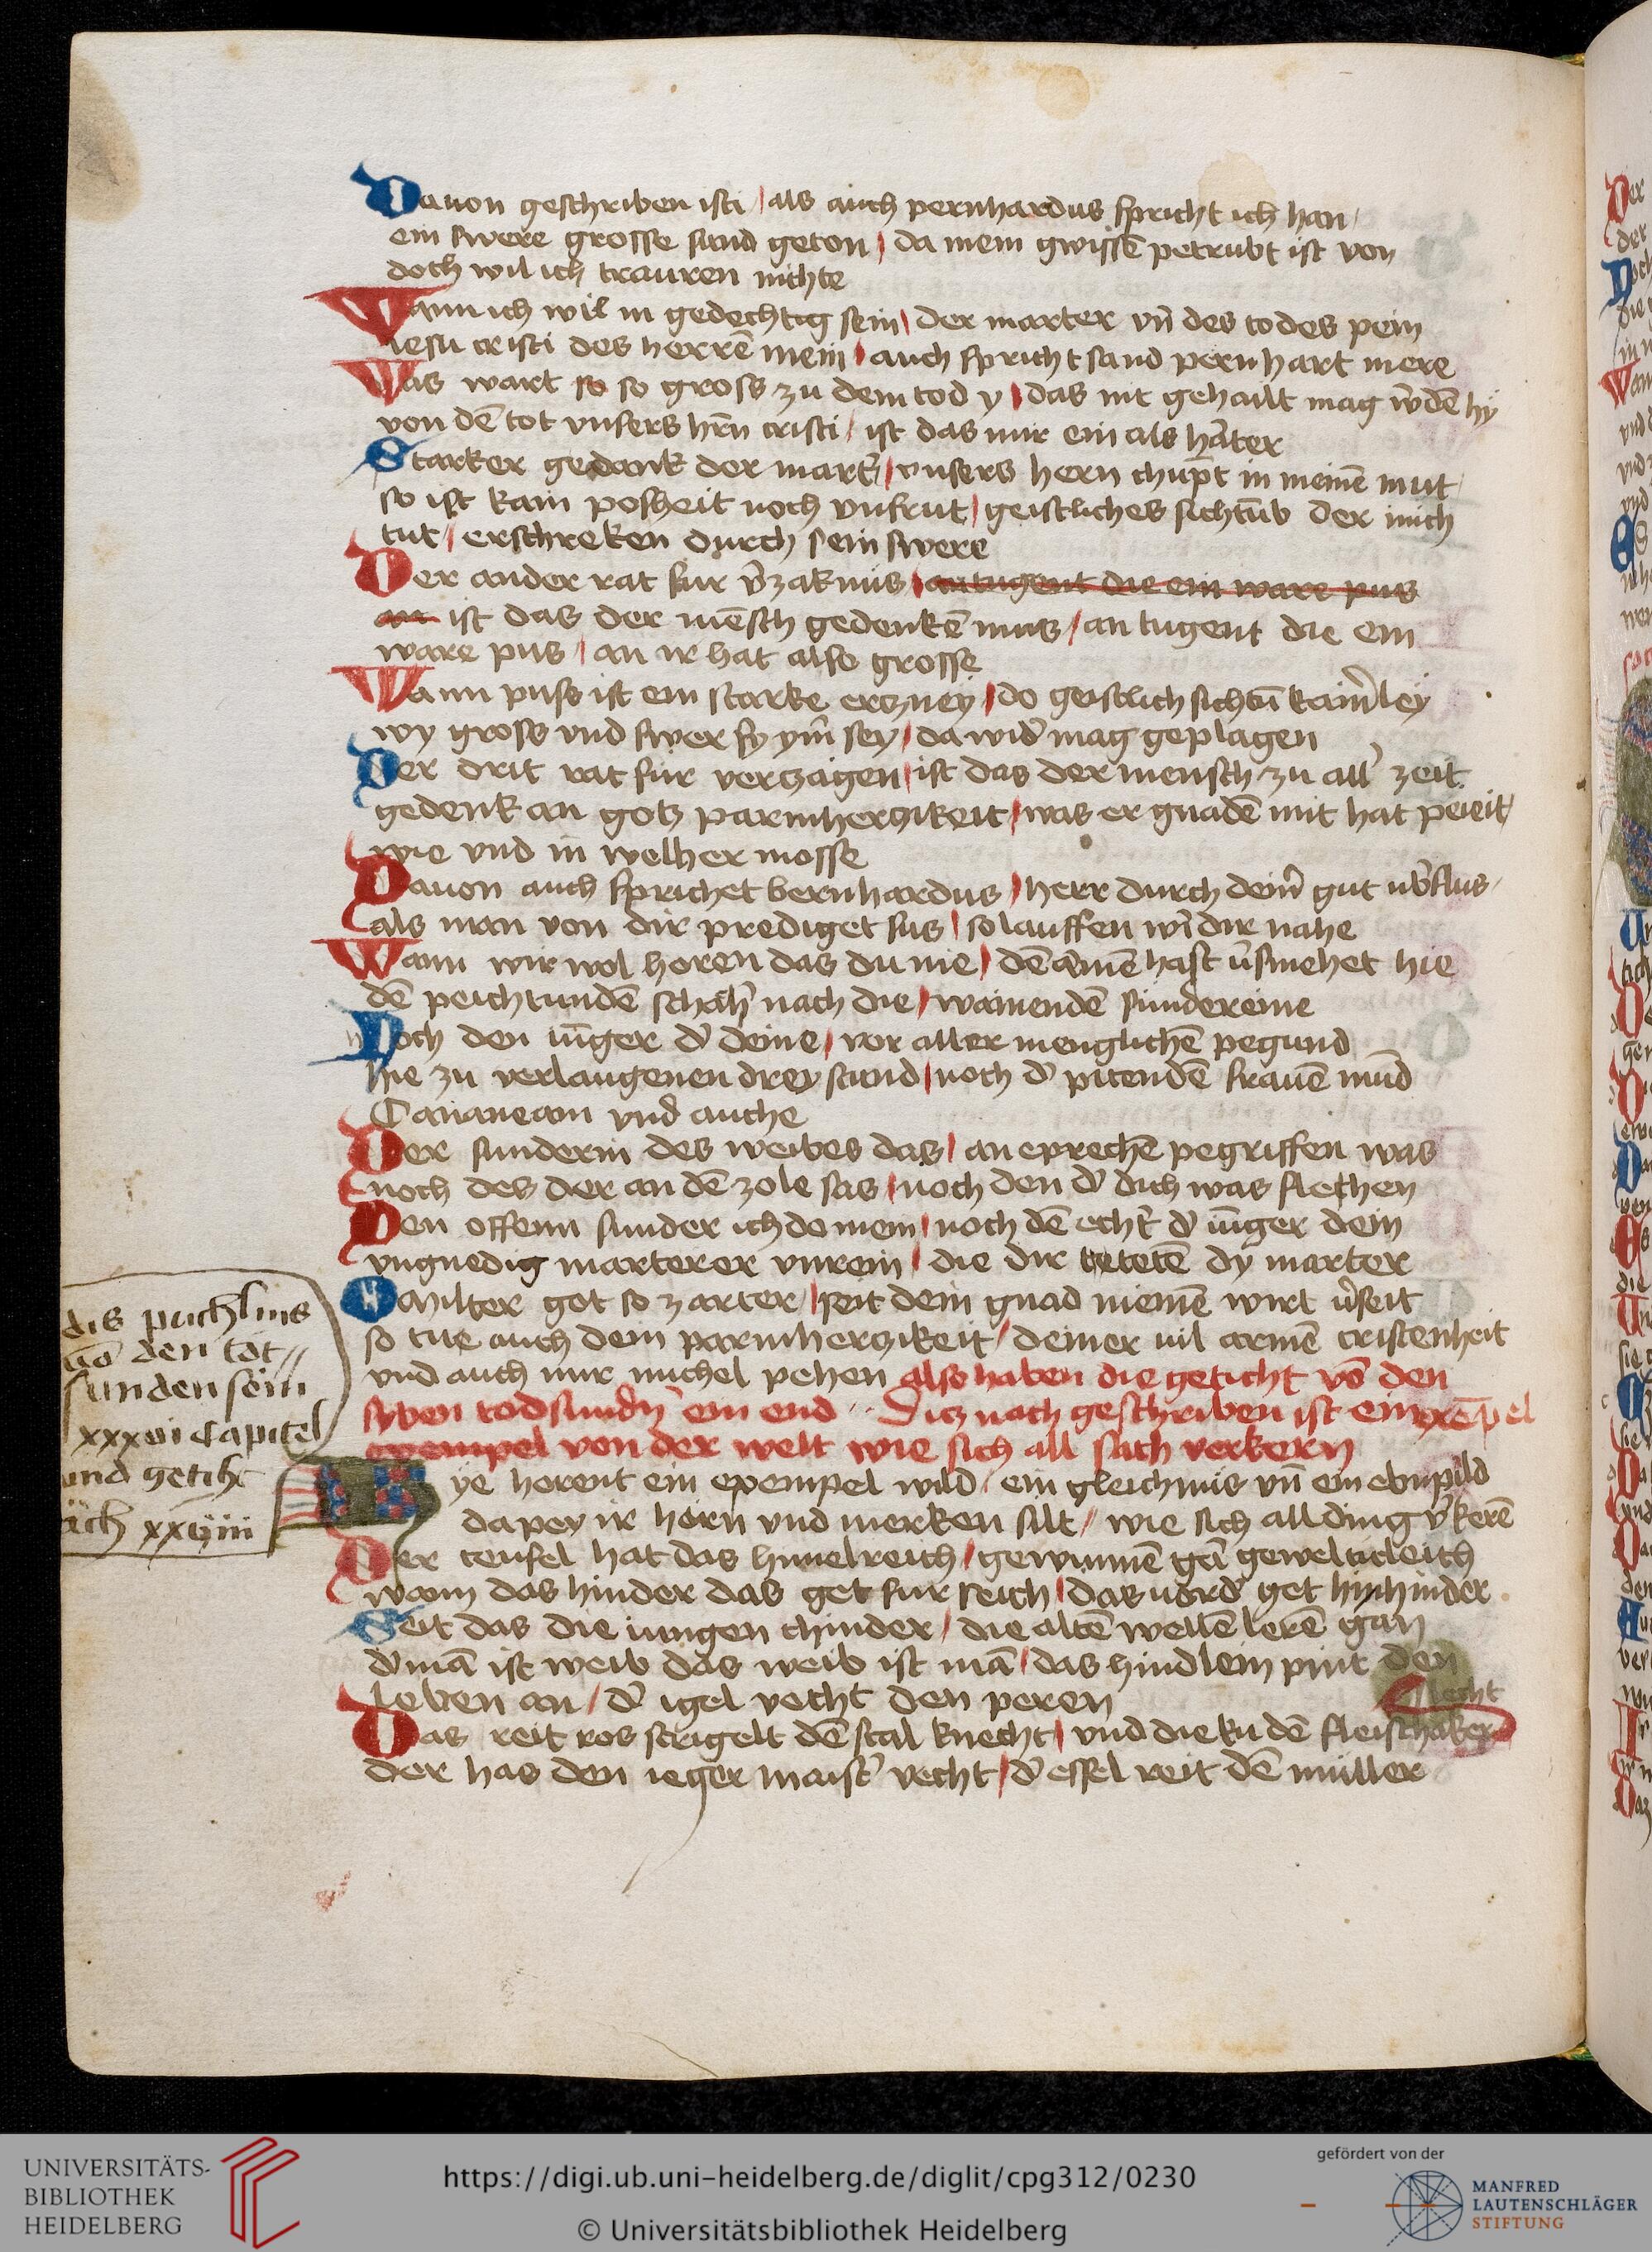 Dauon geschriben isti / als auch pernhardus spricht ich han /
ein swere grosse sund geton / da mein gwissē petrubt ist von
doch wil ich trauren nichte
Wann ich wil in gedechtig sein / der marter vn̄ des todes pein
iesu cristi des herrē mein / auch spricht sand pernhart mere
Was wart so so gross zu dem tod y / das nit gehailt mag w̄dē hy
von dē tot vnsers hrn̄ cristi / ist das mir ein als hāter
Starker gedank der mart̄ / vnsers hern chup̄t in meinē mut /
so ist kain posheit noch vnfrut / geistliches sichtūb der mich
tut / erschreken durch sein swere
Der ander rat fur v̄zaknus / an tugent die ein ware pus
an ist das der mēsch gedenkē mus / an tugent die ein
ware pus / an ir hat also grosse
Wann puss ist ein starke erczney / do geistlich sichtū kain̄ley
wy gross vnd swer sy ym̄ sey / da wid̄ mag geplagen
Der drit rat fur verczagen / ist das der mensch zu all̄ zeit
gedenk an gotz parmherczikeit / was er gnadē mit hat peieit /
wie vnd in welher mosse
Dauon auch sprichet bernhardus / herr durch dein̄ gut ub̄flus /
als man von dir prediget sus / so lauffen wī dir nahe
Wann wir wol horen das du nie / dē armē hast v̄smehet hie
dē peichtundē schāh̄ nach die / wainendē sundereine
Noch den iūger d̄ deine / vor aller menglichē pegund
hie zu verlaugenen drey stund / noch d̄ pitendē frauē mūd
Cananeam vnd auche
Der sunderin des weibes das / an eprechē pegriffen was
noch des der an dē zole sas / noch den d̄ dich was flechen
Den offenn sunder ich do mein / noch dē echt̄ d̄ iūger dein
vngnedig marterer vnrein / die dir tetetē dy marter
O Milter got so zarter / seit dein gnad niemē wirt v̄seit
so tue auch dein parmherczikeit / deiner vil armē cristenheit
vnd auch mir michel pehen also haben die geticht vō den
syben todsundn̄ ein end ·· Ditz nach geschriben ist ein exēpel
exempel von der welt wie sich all sach verkern
dis puchlins
vō den tot //
sunden sein
xxxvi Capitel
und geticht
ich xxviiii
ye horent ein exempel wild / ein gleichnus vn̄ ein ebnpild
da pey ir horn vnd merken silt / wie sich all ding v̄kerē
Der teufel hat das himelreich / gewunnē gā geweltickleich
wann das hinder das get fur seich / das vord̄ get hin hinder
Seit das die iungen chinder / die altē wellē lerē gan
d̄ mā ist weib das weib ist mā / das hindlein pint den
leben an / d̄ igel vecht den peren
slecht
Das reit ros strigelt dē stal knecht / vnd die ku dē fleischaker
der has den ieger maist̄ vecht / d̄ essel reit dē müller
UNIVERSITÄTS-
BIBLIOTHEK
HEIDELBERG
https://digi.ub.uni-heidelberg.de/diglit/cpg312/0230
© Universitätsbibliothek Heidelberg
gefördert von der
MANFRED
LAUTENSCHLÄGER
STIFTUNG